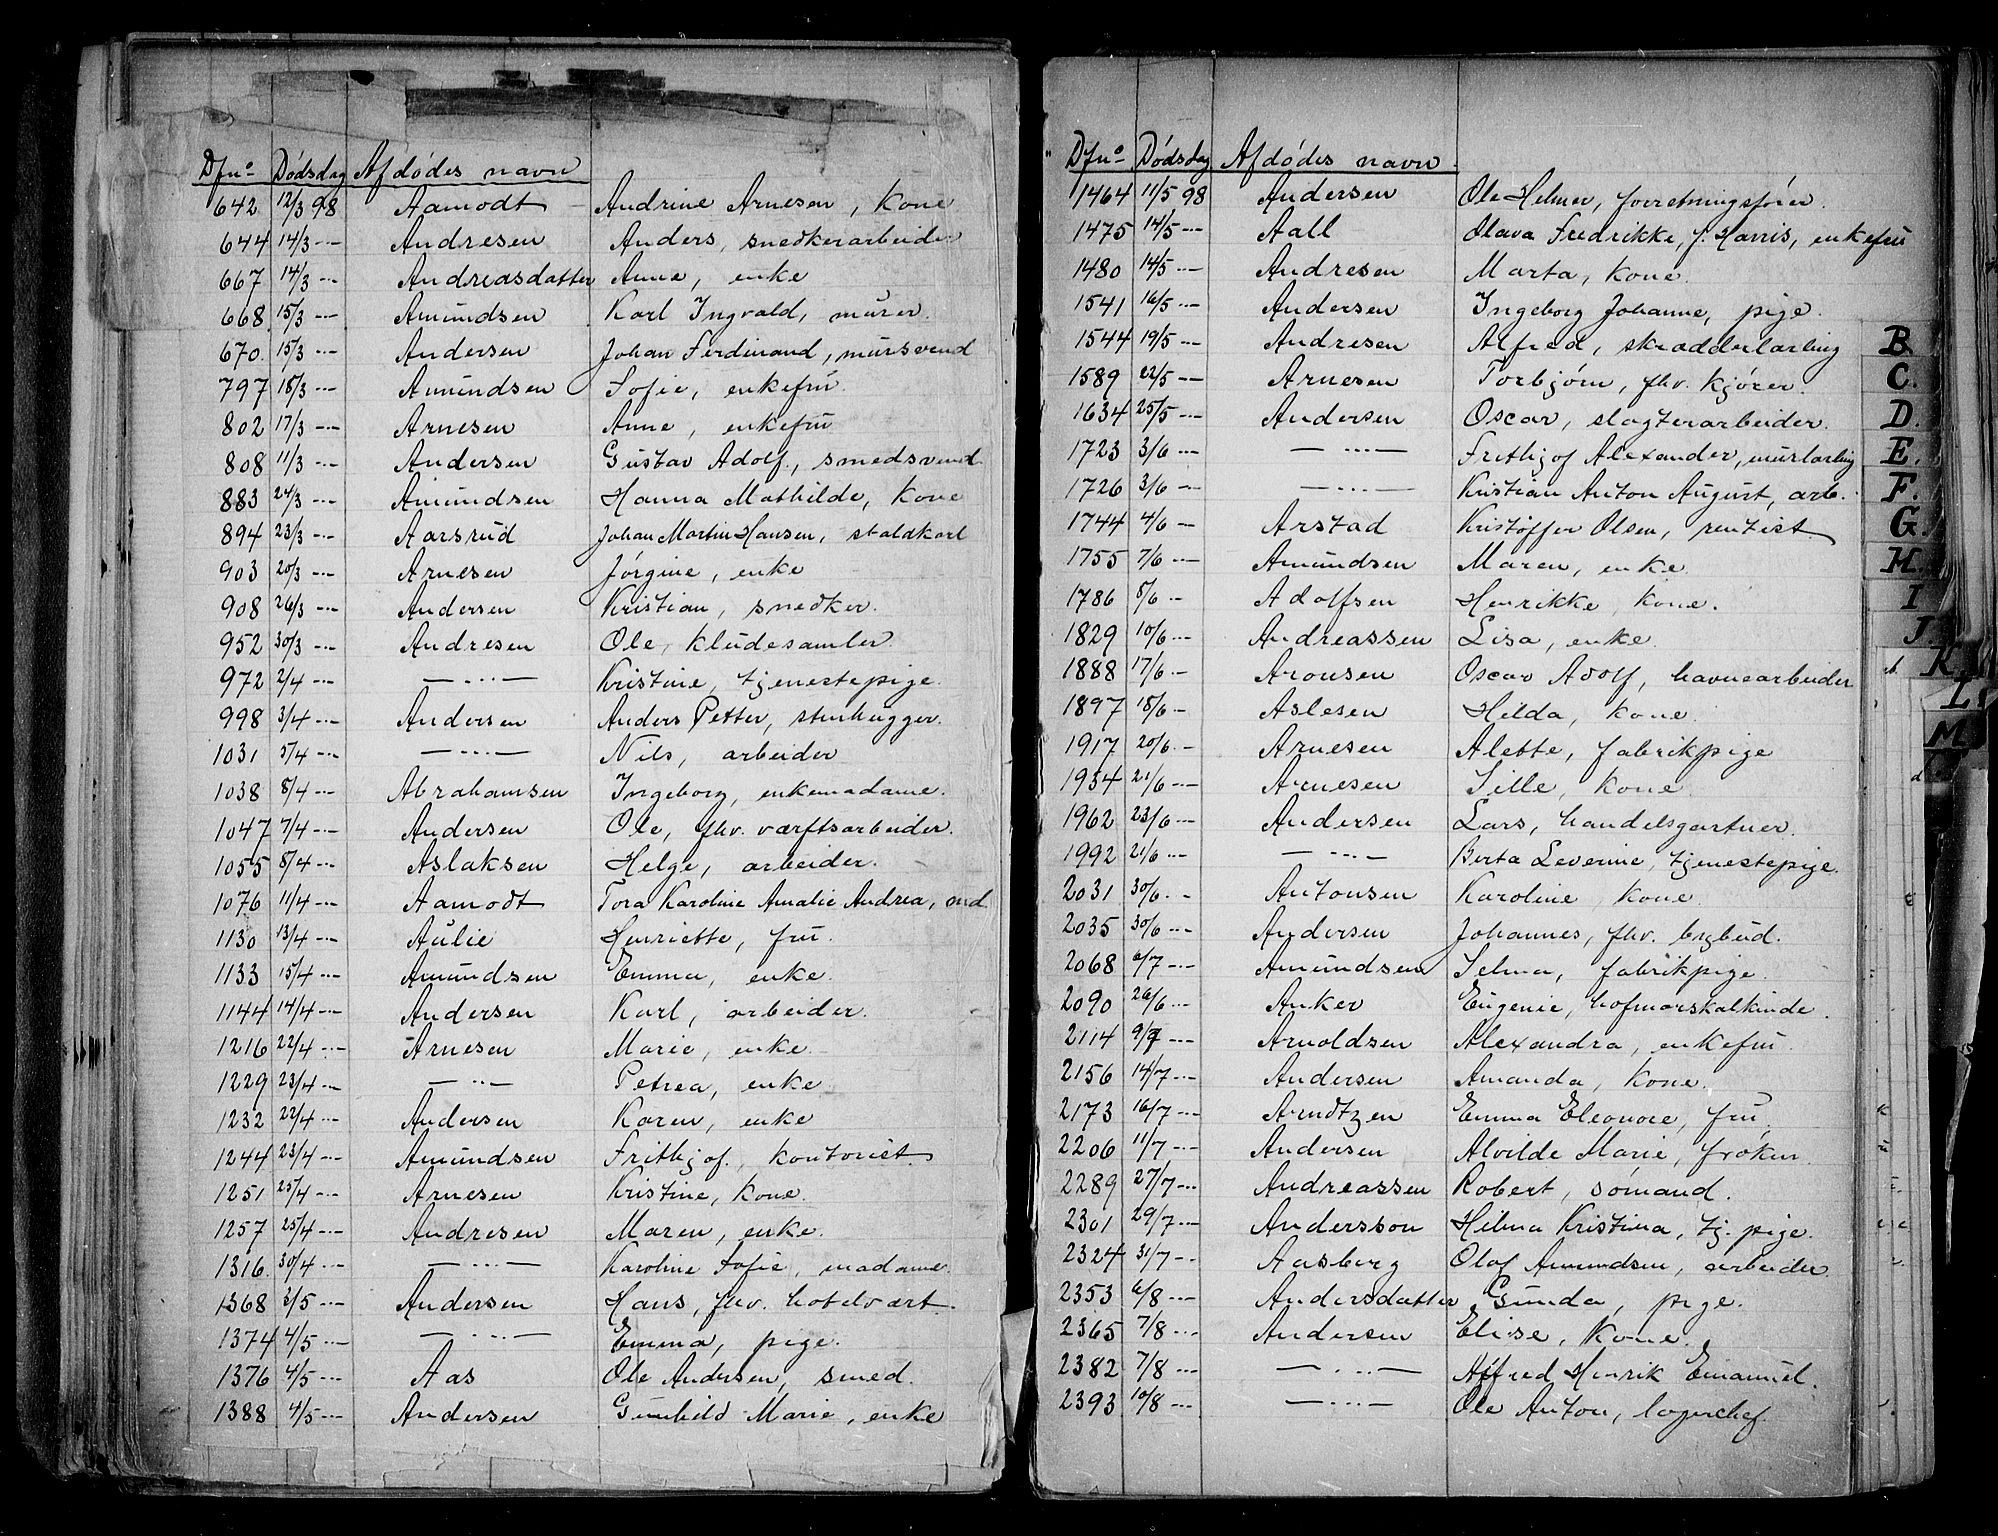 Dfn° Dødsdag Afdødes navn
642 12/3 98 Aamodt Andrine Arnesen, kone
644 14/3 -..- Andresen Anders, snedkerarbeider
667 14/3 -..- Andreasdatter Anne, enke
668 15/3 -..- Amundsen Karl Ingvald, murer.
670. 15/3 -..- Andersen Johan Ferdinand, mursvend
797 18/3 -..- Amundsen Sofie, enkefru.
802 17/3 -..- Arnesen Anne, enkefru
808 11/3 -..- Andersen Gustav Adolf, smedsvend
883 24/3 -..- Amundsen Hanna Mathilde, kone
894 23/3 -..- Aarsrud Johan Martin Hansen, staldkarl
903 20/3 -..- Arnesen Jørgine, enke
908 26/3 -..- Andersen Kristian, snedker.
952 30/3 -..- Andresen Ole, kludesamler.
972 2/4 -..- —-...-— Kristine, tjenestepige.
998 3/4 -..- Andersen Anders Petter, stenhugger.
1031 5/4 -..- —-...-— Nils, arbeider
1038 8/4 -..- Abrahamsen Ingeborg, enkemadame.
1047 7/4 -..- Andersen Ole, fhv. værftsarbeider.
1055 8/4 -..- Aslaksen Helge, arbeider.
1076 11/4 -..- Aamodt Tora Karoline Amalie Andrea,
1130 13/4 -..- Aulie Henriette, fru.
1133 15/4 -..- Amundsen Emma, enke.
1144 14/4 -..- Andersen Karl, arbeider.
1216 22/4 -..- Arnesen Marie, enke.
1229 23/4 -..- —-..-— Petrea, enke.
1232 22/4 -..- Andersen Karen, enke
1244 23/4 -..- Amundsen Frithjof, kontorist.
1251 25/4 -..- Arnesen Kristine, kone.
1257 25/4 -..- Andresen Maren, enke.
1316. 30/4 -..- —-...-— Karoline Sofie, madame.
1368 3/5 -..- Andersen Hans, fhv. hotelvært.
1374 4/5 -..- —-...-— Emma, pige.
1376 4/5 -..- Aas Ole Andersen, smed.
1388 4/5 -..- Andersen Gunhild Marie, enke
Dfn° Dødsdag Afdødes navn.
1464 11/5 98 Andersen Ole Helmer, forretningsfører.
1475 14/5 -..- Aall Olava Fredrikke, f. Harris, enkefru
1480 14/5 -..- Andresen Marta, kone.
1541 16/5 -..- Andersen Ingeborg Johanne, pige.
1544 19/5 -..- Andresen Alfred, skrædderlærling
1589 22/5 -..- Arnesen Torbjørn, fhv. kjører.
1634 25/5 -..- Andersen Oscar, slagterarbeider.
1723 3/6 -..- —-...-— Frithjof Alexander, murlærling
1726 3/6 -..- —-...-— Kristian Anton August, arb.
1744 4/6 - Arstad Kristoffer Olsen, rentist
1755 7/6 -..- Amundsen Maren, enke.
1786 8/6 .- Adolfsen Henrikke, kone.
1829 10/6 -..- Andreassen Lisa, enke.
1888 17/6 .- Aronsen Oscar Adolf, havnearbeider
1897 18/6 - Aslesen Hilda, kone.
1917 20/6 .- Arnesen Alette, fabrikpige
1954 21/6 -..- Arnesen Sille, kone.
1962 23/6 -..- Andersen Lars, handelsgartner.
1992 21/6 -..- —-...-— Berta Severine, tjenestepige.
2031 30/6 .- Antonsen Karoline, kone.
2035 30/6 -..- Andersen Johannes, fhv. bybud.
2068 6/7 -..- Amundsen Selma, fabrikpige.
2090 26/6 -..- Anker Eugenie, hofmarskalkinde.
2114 9/7 -..- Arnoldsen Alexandra, enkefru.
2156 14/7 -..- Andersen Amanda, kone.
2173 16/7 -..- Arndtzen Emma Eleonore, fru.
2206 11/7 -..- Andersen Alvilde Marie, frøken.
2289 27/7 -..- Andreassen Robert, sømand.
2301 29/7 -..- Andersson Hilma Kristina, tj. pige.
2324 31/7 -..- Aasberg Olaf Amundsen, arbeider.
2353 6/8 -..- Andersdatter Gunda, pige.
2365 7/8 -..- Andersen Elise, kone.
2382 7/8 -..- —-...-— Alfred Henrik Emanuel.
2393 10/8 -..- —-...-— Ole Anton, lagerchef.
B.
C.
D.
E.
F.
G.
H.
I
J.
K
L
M